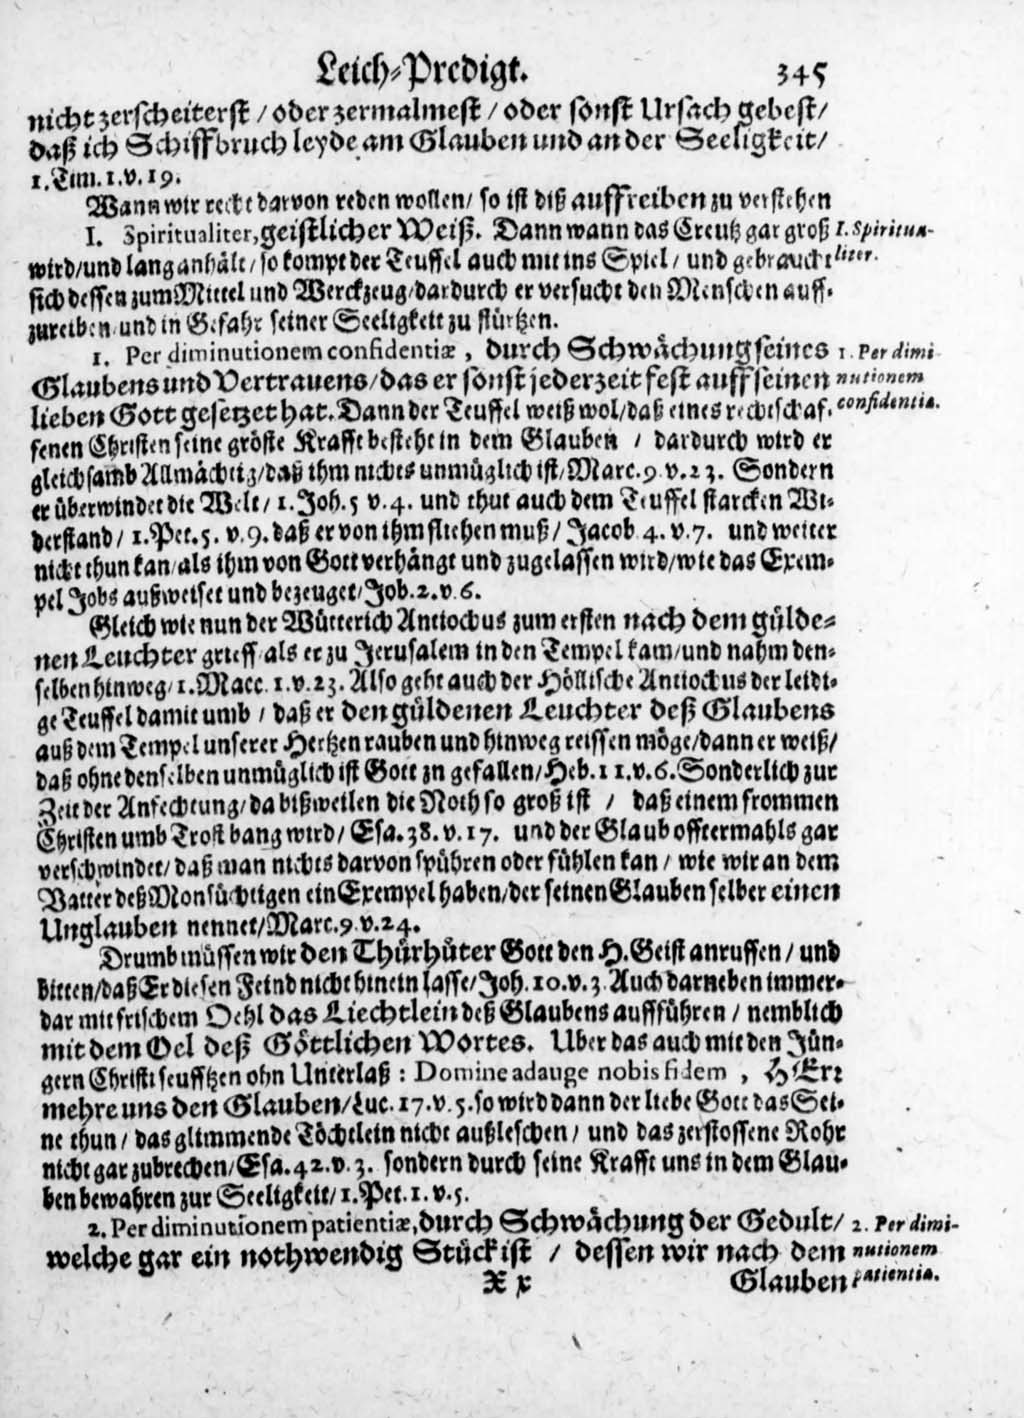 Leich-Predigt. 345
nicht zerscheiterst / oder zermalmest / oder sonst Ursach gebest/
daß ich Schiffbruch leyde am Glauben und an der Seeligkeit/
1. Tim. 1. v. 19.
Wann wir recht darvon reden wollen/ so ist diß auffreiben zu verstehen
I. Spiritualiter, geistlicher Weiß. Dann wann das Creutz gar groß I. Spiritua-
wird/und lang anhält/ so kompt der Teuffel auch mit ins Spiel / und gebraucht liter.
sich dessen zum Mittel und Werckzeug/dardurch er versucht den Menschen auff-
zureiben/und in Gefahr seiner Seeligkeit zu stürtzen.
1. Per diminutionem confidentiæ , durch Schwächung seines 1. Per dimi-
Glaubens und Vertrauens/das er sonst jederzeit fest auff seinen nutionem
lieben Gott gesetzet hat. Dann der Teuffel weiß wol/daß eines rechtschaf- confidentiæ.
fenen Christen seine gröste Krafft besteht in dem Glauben / dardurch wird er
gleichsamb Allmächtig/daß ihm nichts unmüglich ist/Marc. 9. v. 23. Sondern
er überwindet die Welt/ 1. Joh. 5 v. 4. und thut auch dem Teuffel starcken Wi-
derstand/ 1. Pet. 5. v. 9. daß er von ihm fliehen muß/ Jacob. 4. v. 7. und weiter
nicht thun kan/als ihm von Gott verhängt und zugelassen wird/wie das Exem-
pel Jobs außweiset und bezeuget/Job. 2. v. 6.
Gleich wie nun der Wütterich Antiochus zum ersten nach dem gülde-
nen Leuchter grieff/als er zu Jerusalem in den Tempel kam/und nahm den-
selben hinweg/1. Macc. 1. v. 23. Also geht auch der Höllische Antiochus der leidi-
ge Teuffel damit umb / daß er den güldenen Leuchter deß Glaubens
auß dem Tempel unserer Hertzen rauben und hinweg reissen möge/dann er weiß/
daß ohne denselben unmüglich ist Gott zn gefallen/Heb. 11. v. 6. Sonderlich zur
Zeit der Anfechtung/da bißweilen die Noth so groß ist / daß einem frommen
Christen umb Trost bang wird/ Esa. 38. v. 17. und der Glaub offtermahls gar
verschwindet/ daß man nichts darvon spühren oder fühlen kan / wie wir an dem
Vatter deß Monsüchtigen ein Exempel haben/der seinen Glauben selber einen
Unglauben nennet/Marc. 9. v. 24.
Drumb müssen wir den Thürhüter Gott den H. Geist anruffen / und
bitten/daß Er diesen Feind nicht hinein lasse/Joh. 10. v. 3. Auch darneben immer-
dar mit frischem Oehl das Liechtlein deß Glaubens aufführen / nemblich
mit dem Oel deß Göttlichen Wortes. Uber das auch mit den Jün-
gern Christi seufftzen ohn Unterlaß : Domine adauge nobis fidem , HErr
mehre uns den Glauben/Luc. 17. v. 5. so wird dann der liebe Gott das Sei-
ne thun / das glimmende Töchtlein nicht außleschen / und das zerstossene Rohr
nicht gar zubrechen/Esa. 42. v. 3. sondern durch seine Krafft uns in dem Glau-
ben bewahren zur Seeligkeit/1. Pet. 1. v. 5.
2. Per diminutionem patientiæ, durch Schwächung der Gedult/ 2. Per dimi-
welche gar ein nothwendig Stück ist / dessen wir nach dem nutionem
X x Glauben patientiæ.